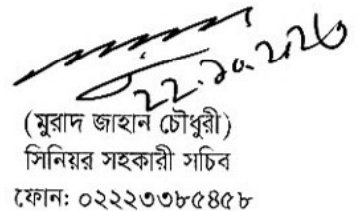 (মুরাদ জাহান চৌধুরী)
সিনিয়র সহকারী সচিব
ফোন: ০২২২৩৩৮৫৪৫৮